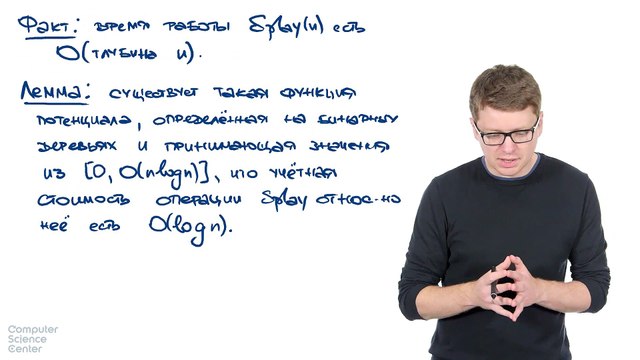 Факт: время работы Splay(u) есть
O(глубина u).
Лемма: существует такая функция
потенциала, определённая на бинарных
деревьях и принимающая значения
из [0, O(n log n)], что учётная
стоимость операции Splay относ-но
неё есть O(log n).
Computer
Science
Center